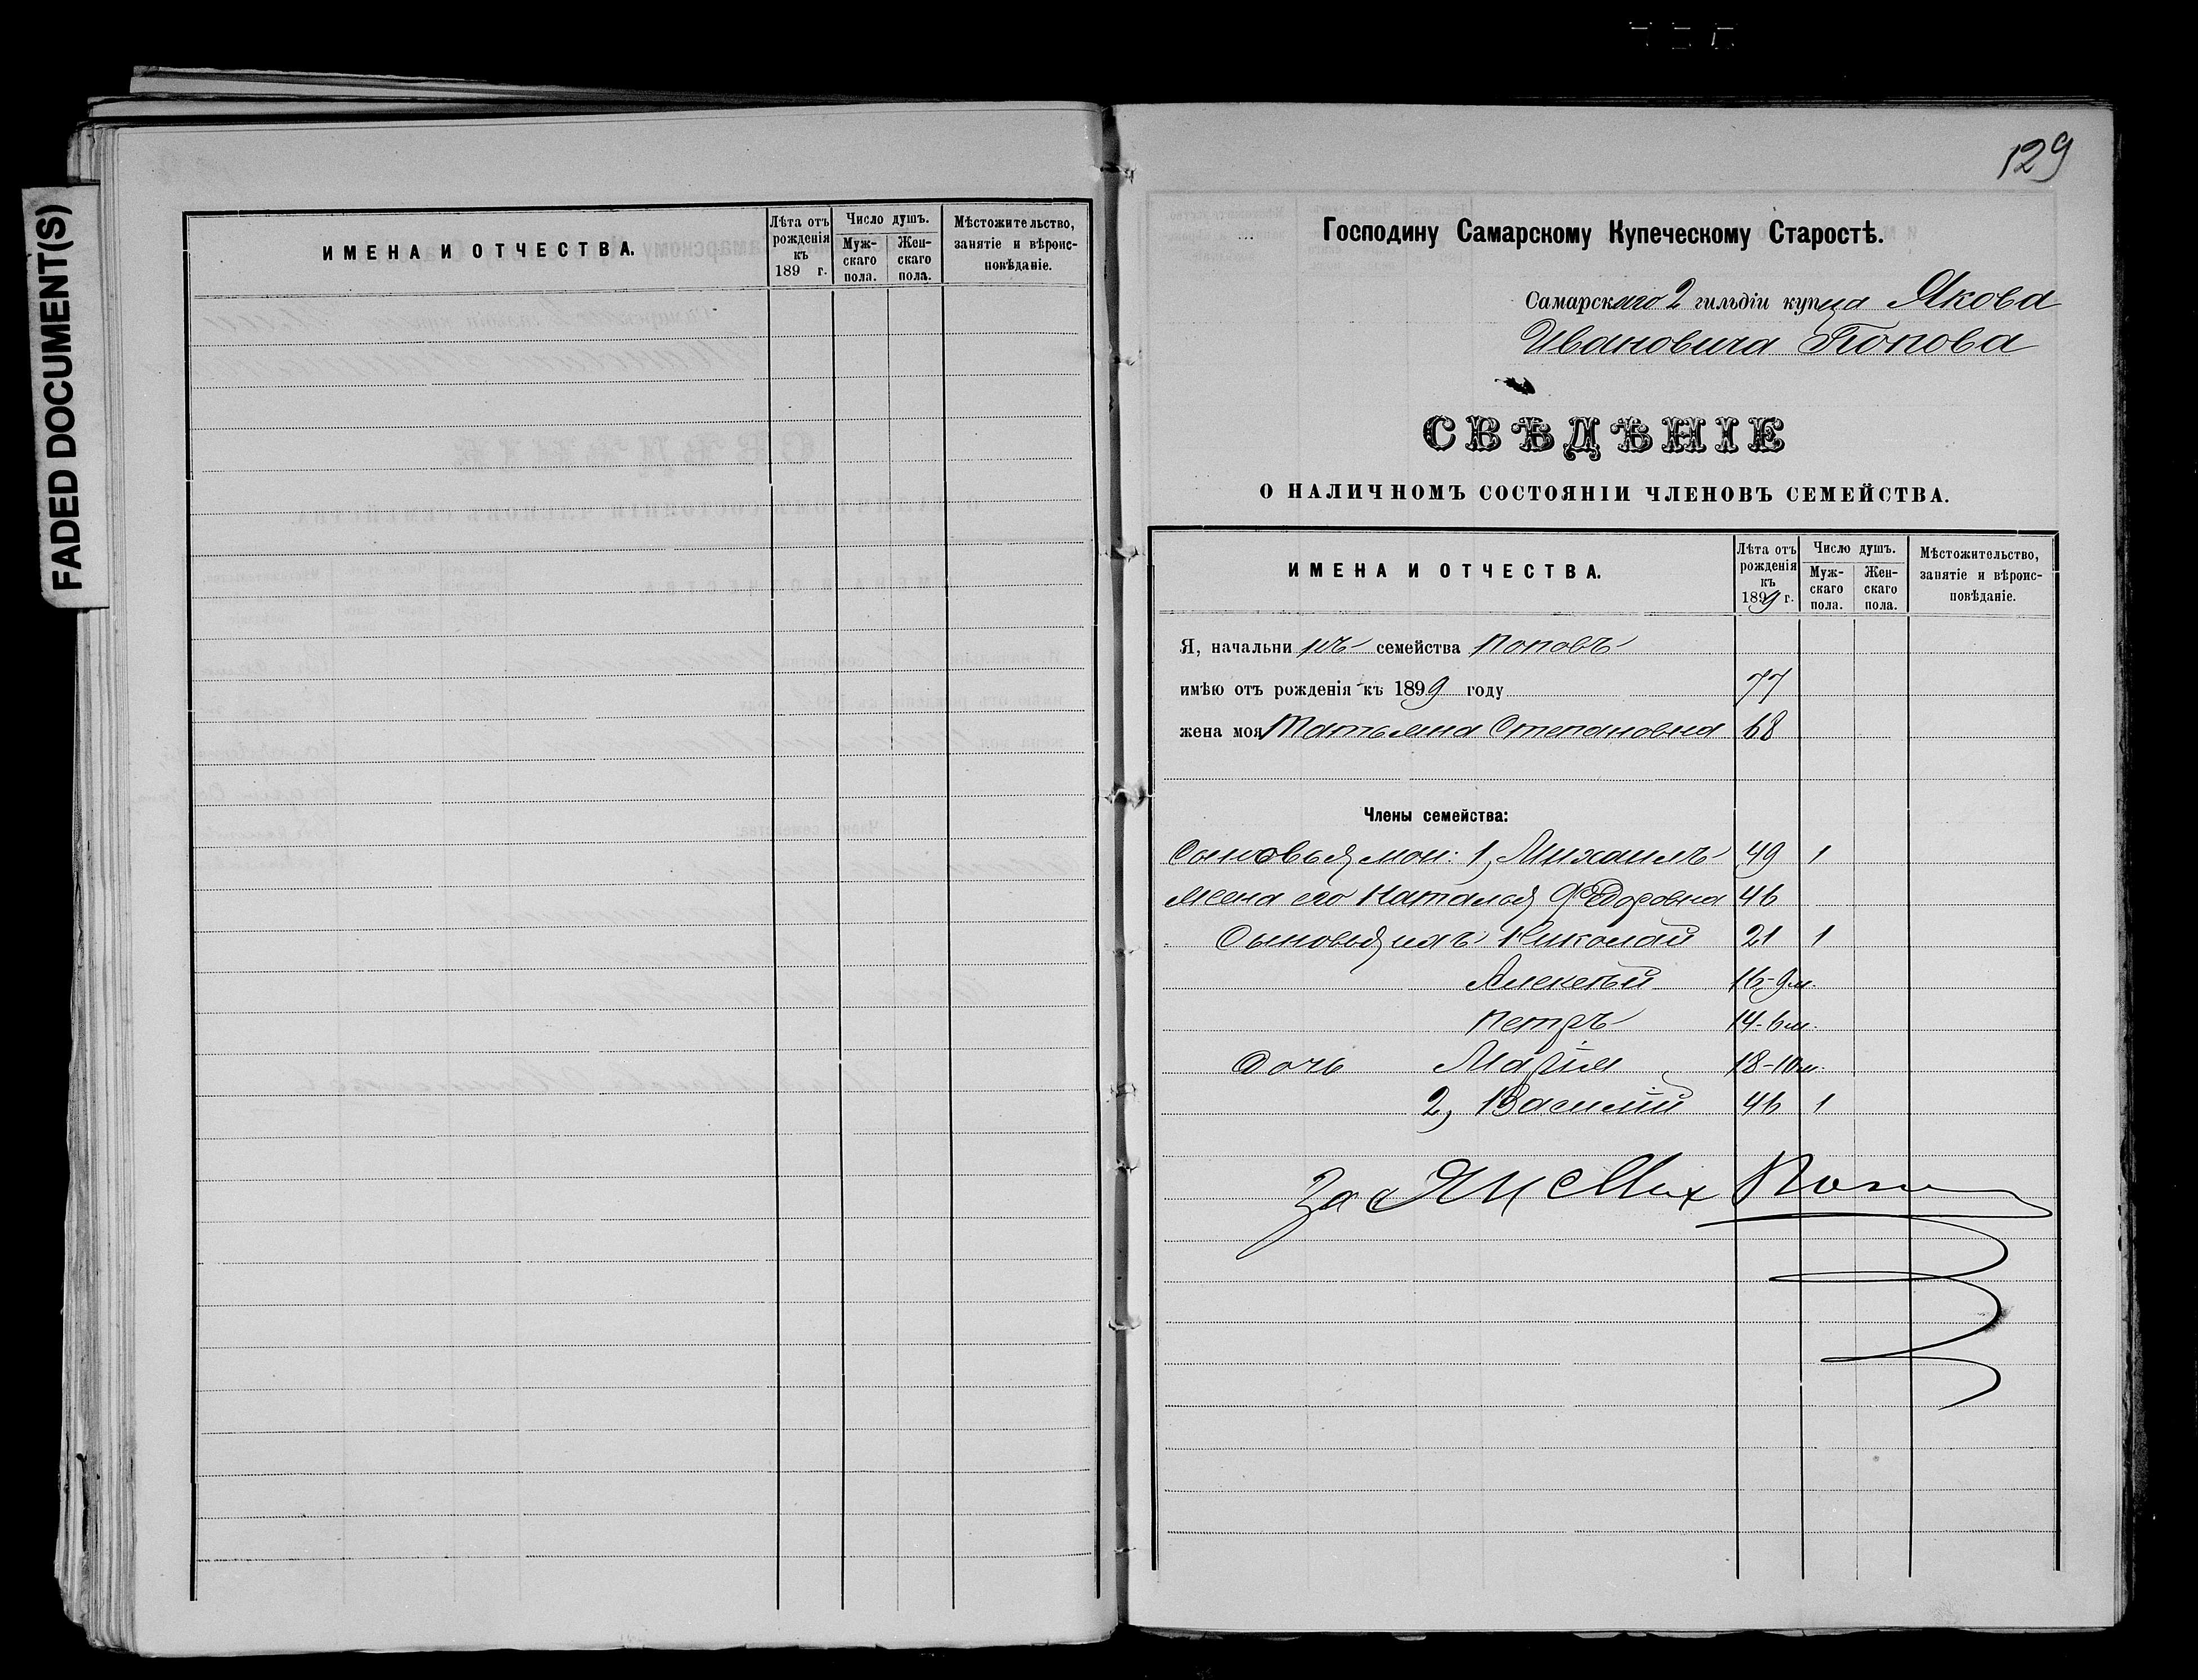 FADED DOCUMENT(S)
ИМЕНА И ОТЧЕСТВА.
Лѣта отъ рожденія къ 189 г.
Число душъ.
Муж- скаго пола.
Жен- скаго пола.
Мѣстожительство, занятіе и вѣроис- повѣданіе.
129
Господину Самарскому Купеческому Старостѣ.
Самарскаго 2 гильдіи купца Якова
Ивановича Попова
СВѢДѢНІЕ
О НАЛИЧНОМЪ СОСТОЯНІИ ЧЛЕНОВЪ СЕМЕЙСТВА.
ИМЕНА И ОТЧЕСТВА.
Лѣта отъ рожденія къ 1899 г.
Число душъ.
Муж- скаго пола.
Жен- скаго пола.
Мѣстожительство, занятіе и вѣроис- повѣданіе.
Я, начальникъ семейства Поповъ
имѣю отъ рожденія къ 1899 году 77
жена моя Татьяна Степановна 68
Члены семейства:
Сыновья мои: 1, Михаилъ 49 1
Жена его Наталья Ѳедоровна 46
Сыновья ихъ Николай 21 1
Алексѣй 16-9м.
Петръ 14-6м.
Дочь Марія 18-10м.
2, Василій 46 1
За Я И Мих Попо